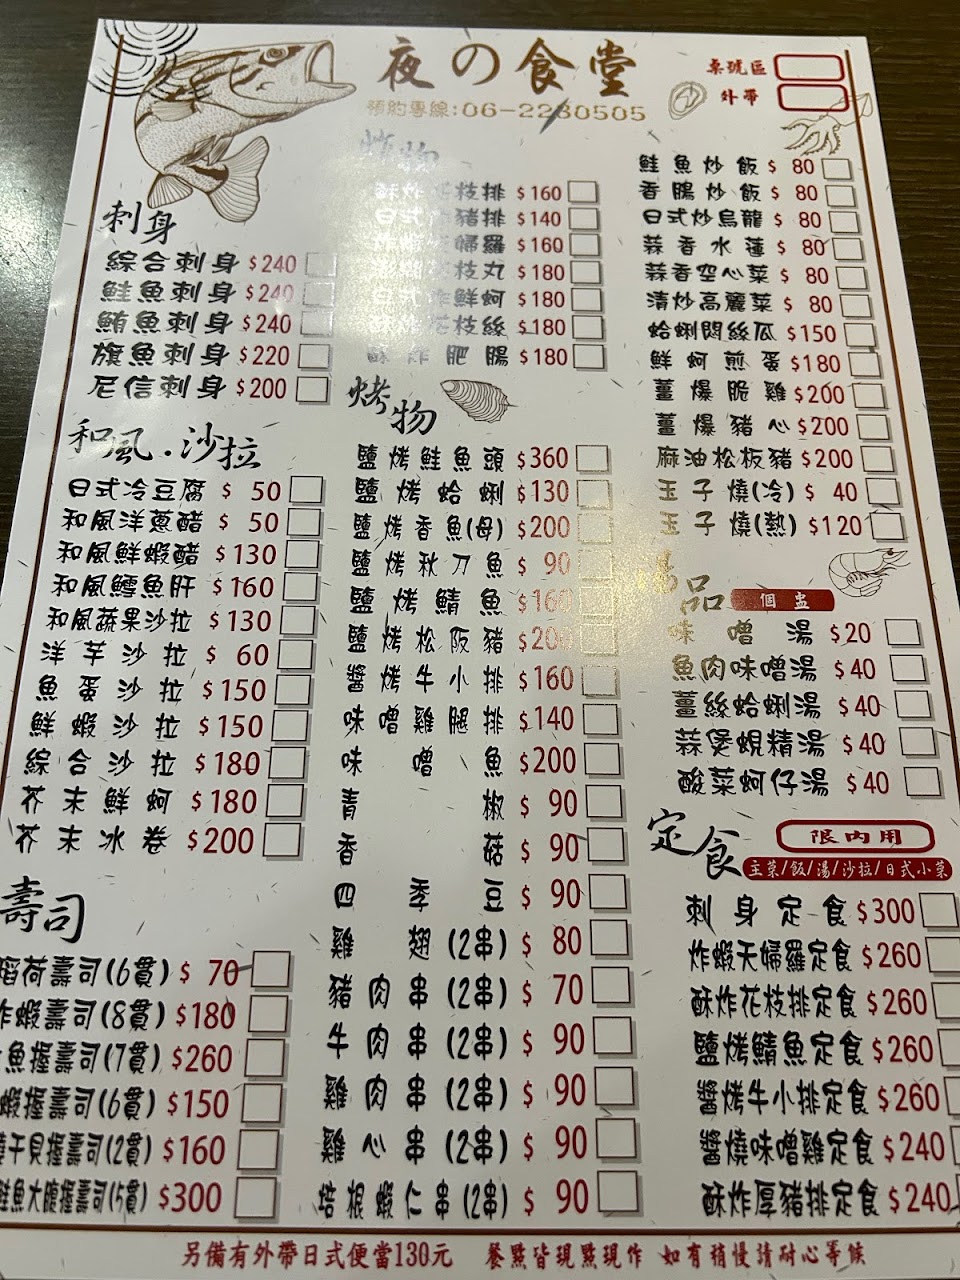 夜の食堂
預約專線:06-2280505
桌號區
外帶
刺身
綜合刺身 $240
鮭魚刺身 $240
鮪魚刺身 $240
旗魚刺身 $220
尼信刺身 $200
和風.沙拉
日式冷豆腐 $ 50
和風洋蔥醋 $ 50
和風鮮蝦醋 $130
和風鱈魚肝 $160
和風蔬果沙拉 $130
洋芋沙拉 $ 60
魚蛋沙拉 $150
鮮蝦沙拉 $150
綜合沙拉 $180
芥末鮮蚵 $180
芥末冰卷 $200
壽司
稻荷壽司(6貫) $ 70
炸蝦壽司(8貫) $180
魚握壽司(7貫) $260
蝦握壽司(6貫) $150
干貝握壽司(2貫) $160
鮭魚大腹握壽司(5貫) $300
炸物
酥炸花枝排 $160
日式炸豬排 $140
婦羅 $160
枝丸 $180
日式炸鮮蚵 $180
酥炸花枝絲 $180
酥炸肥腸 $180
烤物
鹽烤鮭魚頭 $360
鹽烤蛤蜊 $130
鹽烤香魚(母) $200
鹽烤秋刀魚 $ 90
鹽烤鯖魚 $160
鹽烤松阪豬 $200
醬烤牛小排 $160
味噌雞腿排 $140
味噌魚 $200
青椒 $ 90
香菇 $ 90
四季豆 $ 90
雞翅(2串) $ 80
豬肉串(2串) $ 70
牛肉串(2串) $ 90
雞肉串(2串) $ 90
雞心串(2串) $ 90
培根蝦仁串(2串) $ 90
鮭魚炒飯 $ 80
香腸炒飯 $ 80
日式炒烏龍 $ 80
蒜香水蓮 $ 80
蒜香空心菜 $ 80
清炒高麗菜 $ 80
蛤蜊悶絲瓜 $150
鮮蚵煎蛋 $180
薑爆脆雞 $200
薑爆豬心 $200
麻油松板豬 $200
玉子燒(冷) $ 40
玉子燒(熱) $120
湯品
個盅
味噌湯 $20
魚肉味噌湯 $40
薑絲蛤蜊湯 $40
蒜煲蜆精湯 $40
酸菜蚵仔湯 $40
定食
限內用
主菜/飯/湯/沙拉/日式小菜
刺身定食 $300
炸蝦天婦羅定食 $260
酥炸花枝排定食 $260
鹽烤鯖魚定食 $260
醬烤牛小排定食 $260
醬燒味噌雞定食 $240
酥炸厚豬排定食 $240
另備有外帶日式便當130元 餐點皆現點現作 如有稍慢請耐心等候